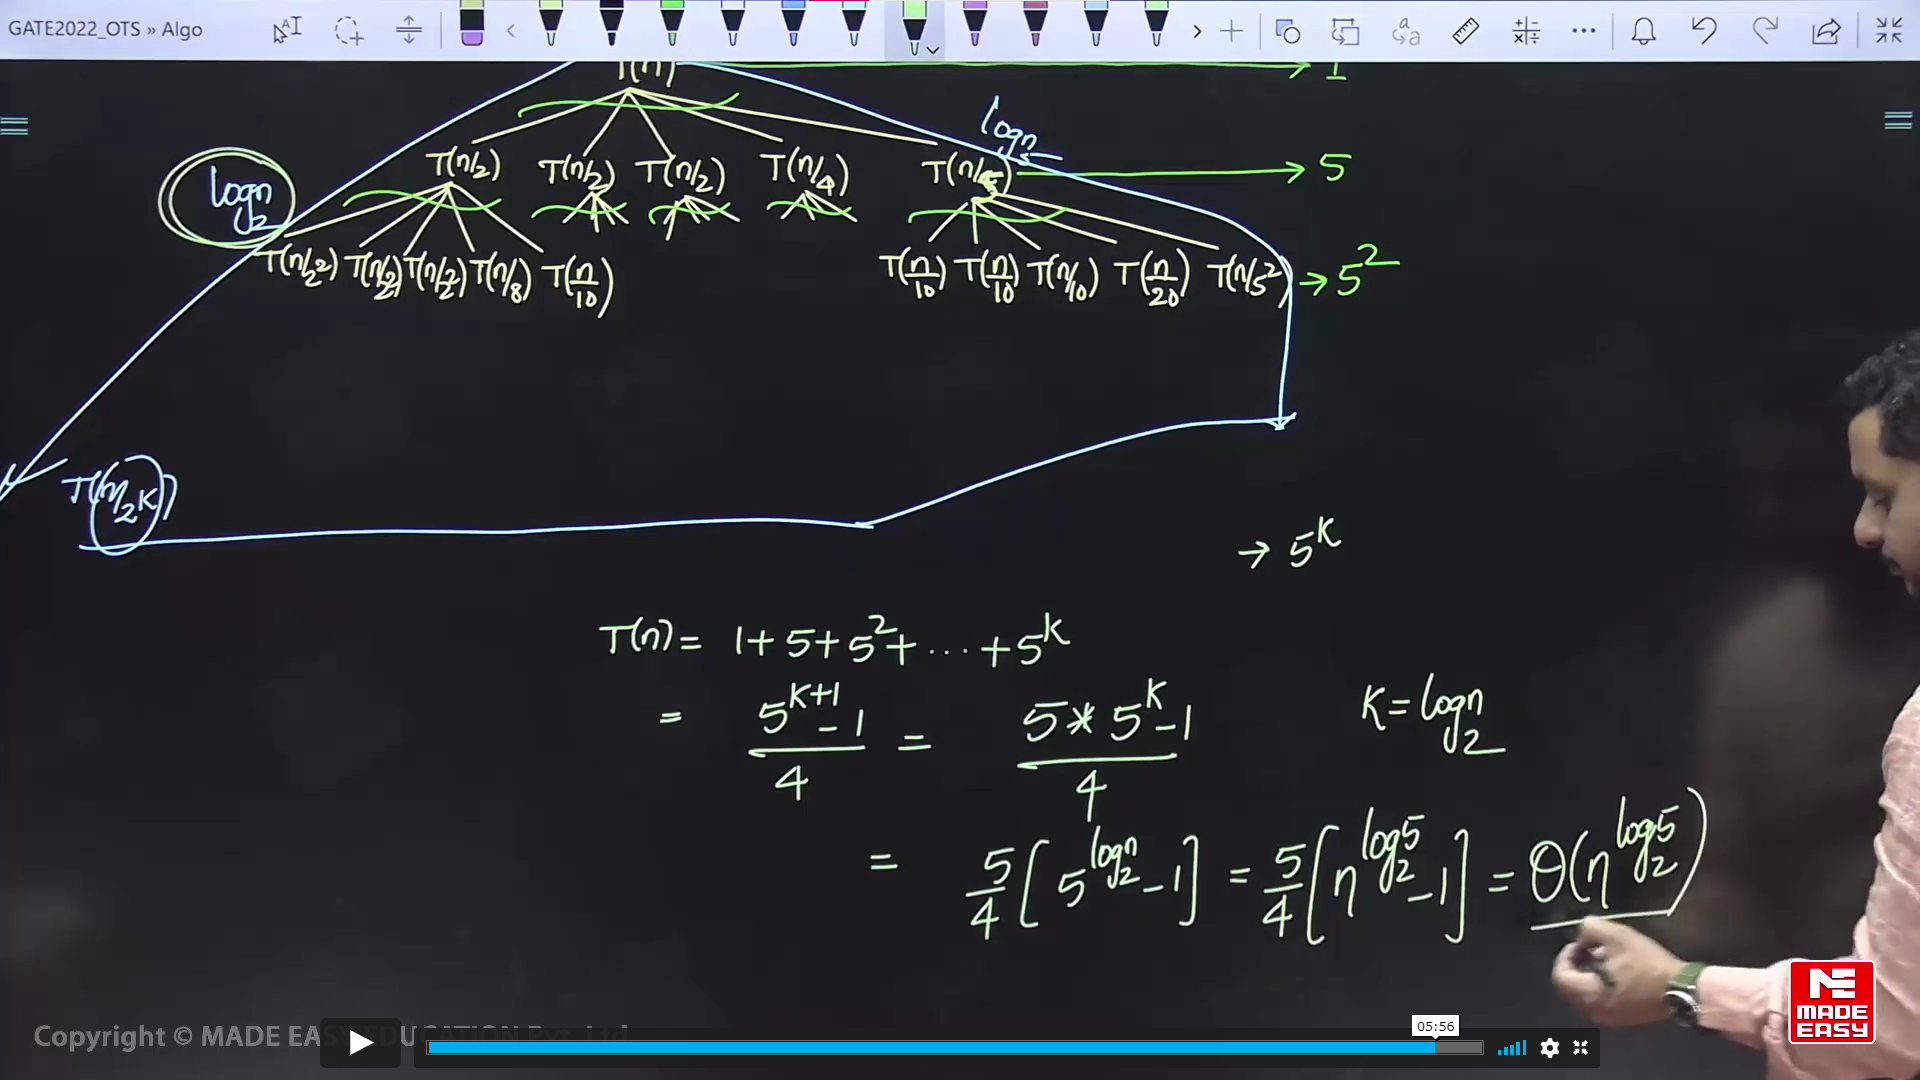 GATE2022_OTS » Algo
T(n) → 1
log n
T(n/2) T(n/2) T(n/2) T(n/4) T(n/5) → 5
log₂n
T(n/2²) T(n/2²) T(n/2²) T(n/8) T(n/10) T(n/10) T(n/10) T(n/10) T(n/20) T(n/5²) → 5²
T(n/2^K)
→ 5^K
T(n) = 1+5+5²+ ... +5^K
= 5^(K+1)-1 / 4 = 5*5^K-1 / 4 K = log₂n
= 5/4 [5^(log₂n) -1] = 5/4 [n^(log₂5) -1] = Θ(n^(log₂5))
MADE EASY
Copyright © MADE EASY EDUCATION Pvt. Ltd
05:56